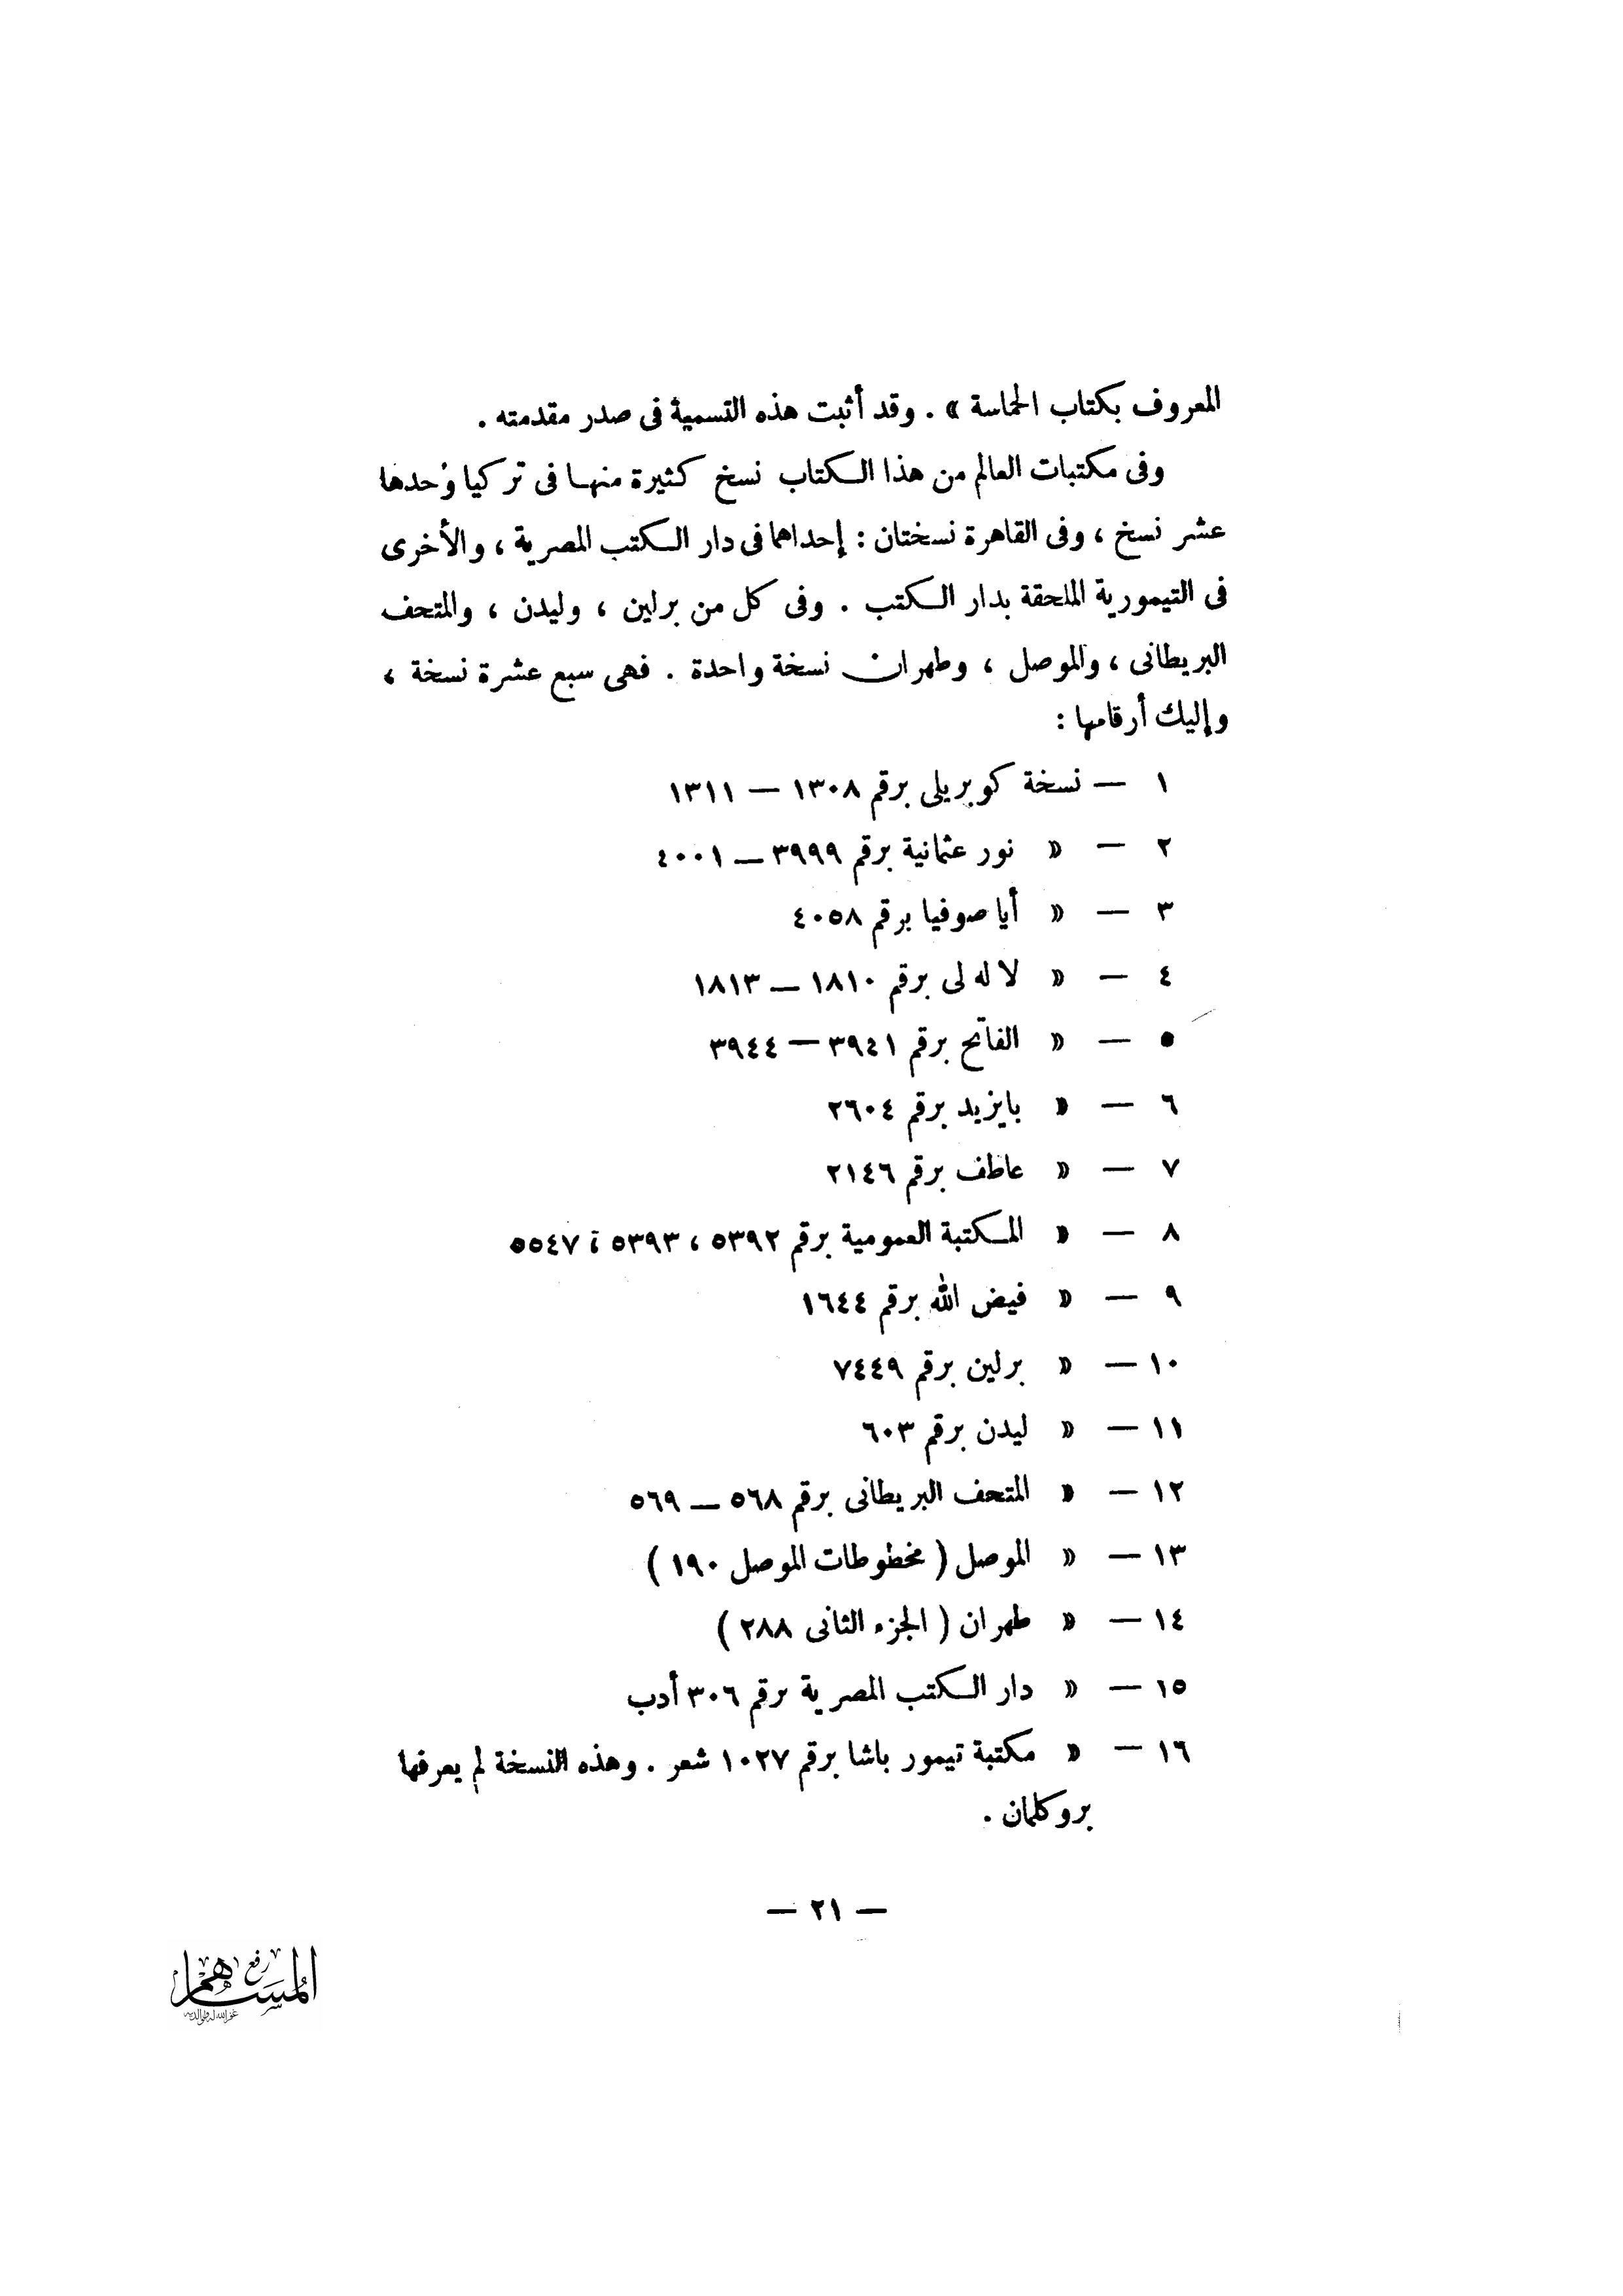 المعروف بكتاب الحماسة » . وقد أثبت هذه التسمية فى صدر مقدمته .
وفى مكتبات العالم من هذا الكتاب نسخ كثيرة منها فى تركيا وحدها
عشر نسخ ، وفى القاهرة نسختان : إحداهما فى دار الكتب المصرية ، والأخرى
فى التيمورية الملحقة بدار الكتب . وفى كل من برلين ، وليدن ، والمتحف
البريطانى ، والموصل ، وطهران نسخة واحدة . فهى سبع عشرة نسخة ،
وإليك أرقامها :
١ — نسخة كوبريلى برقم ١٣٠٨ — ١٣١١
٢ — « نور عثمانية برقم ٣٩٩٩ — ٤٠٠١
٣ — « أيا صوفيا برقم ٤٠٥٨
٤ — « لا له لى برقم ١٨١٠ — ١٨١٣
٥ — « الفاتح برقم ٣٩٤١ — ٣٩٤٤
٦ — « بايزيد برقم ٢٦٠٤
٧ — « عاطف برقم ٢١٤٦
٨ — « المكتبة العمومية برقم ٥٣٩٢ ، ٥٣٩٣ ، ٥٥٤٧
٩ — « فيض الله برقم ١٦٤٤
١٠ — « برلين برقم ٧٤٤٩
١١ — « ليدن برقم ٦٠٣
١٢ — « المتحف البريطانى برقم ٥٦٨ — ٥٦٩
١٣ — « الموصل ( مخطوطات الموصل ١٩٠ )
١٤ — « طهران ( الجزء الثانى ٢٨٨ )
١٥ — « دار الكتب المصرية برقم ٣٠٦ أدب
١٦ — « مكتبة تيمور باشا برقم ١٠٢٧ شعر . وهذه النسخة لم يعرفها
بروكلمان .
— ٢١ —
رفع
المساهم
غفر الله له ولوالديه